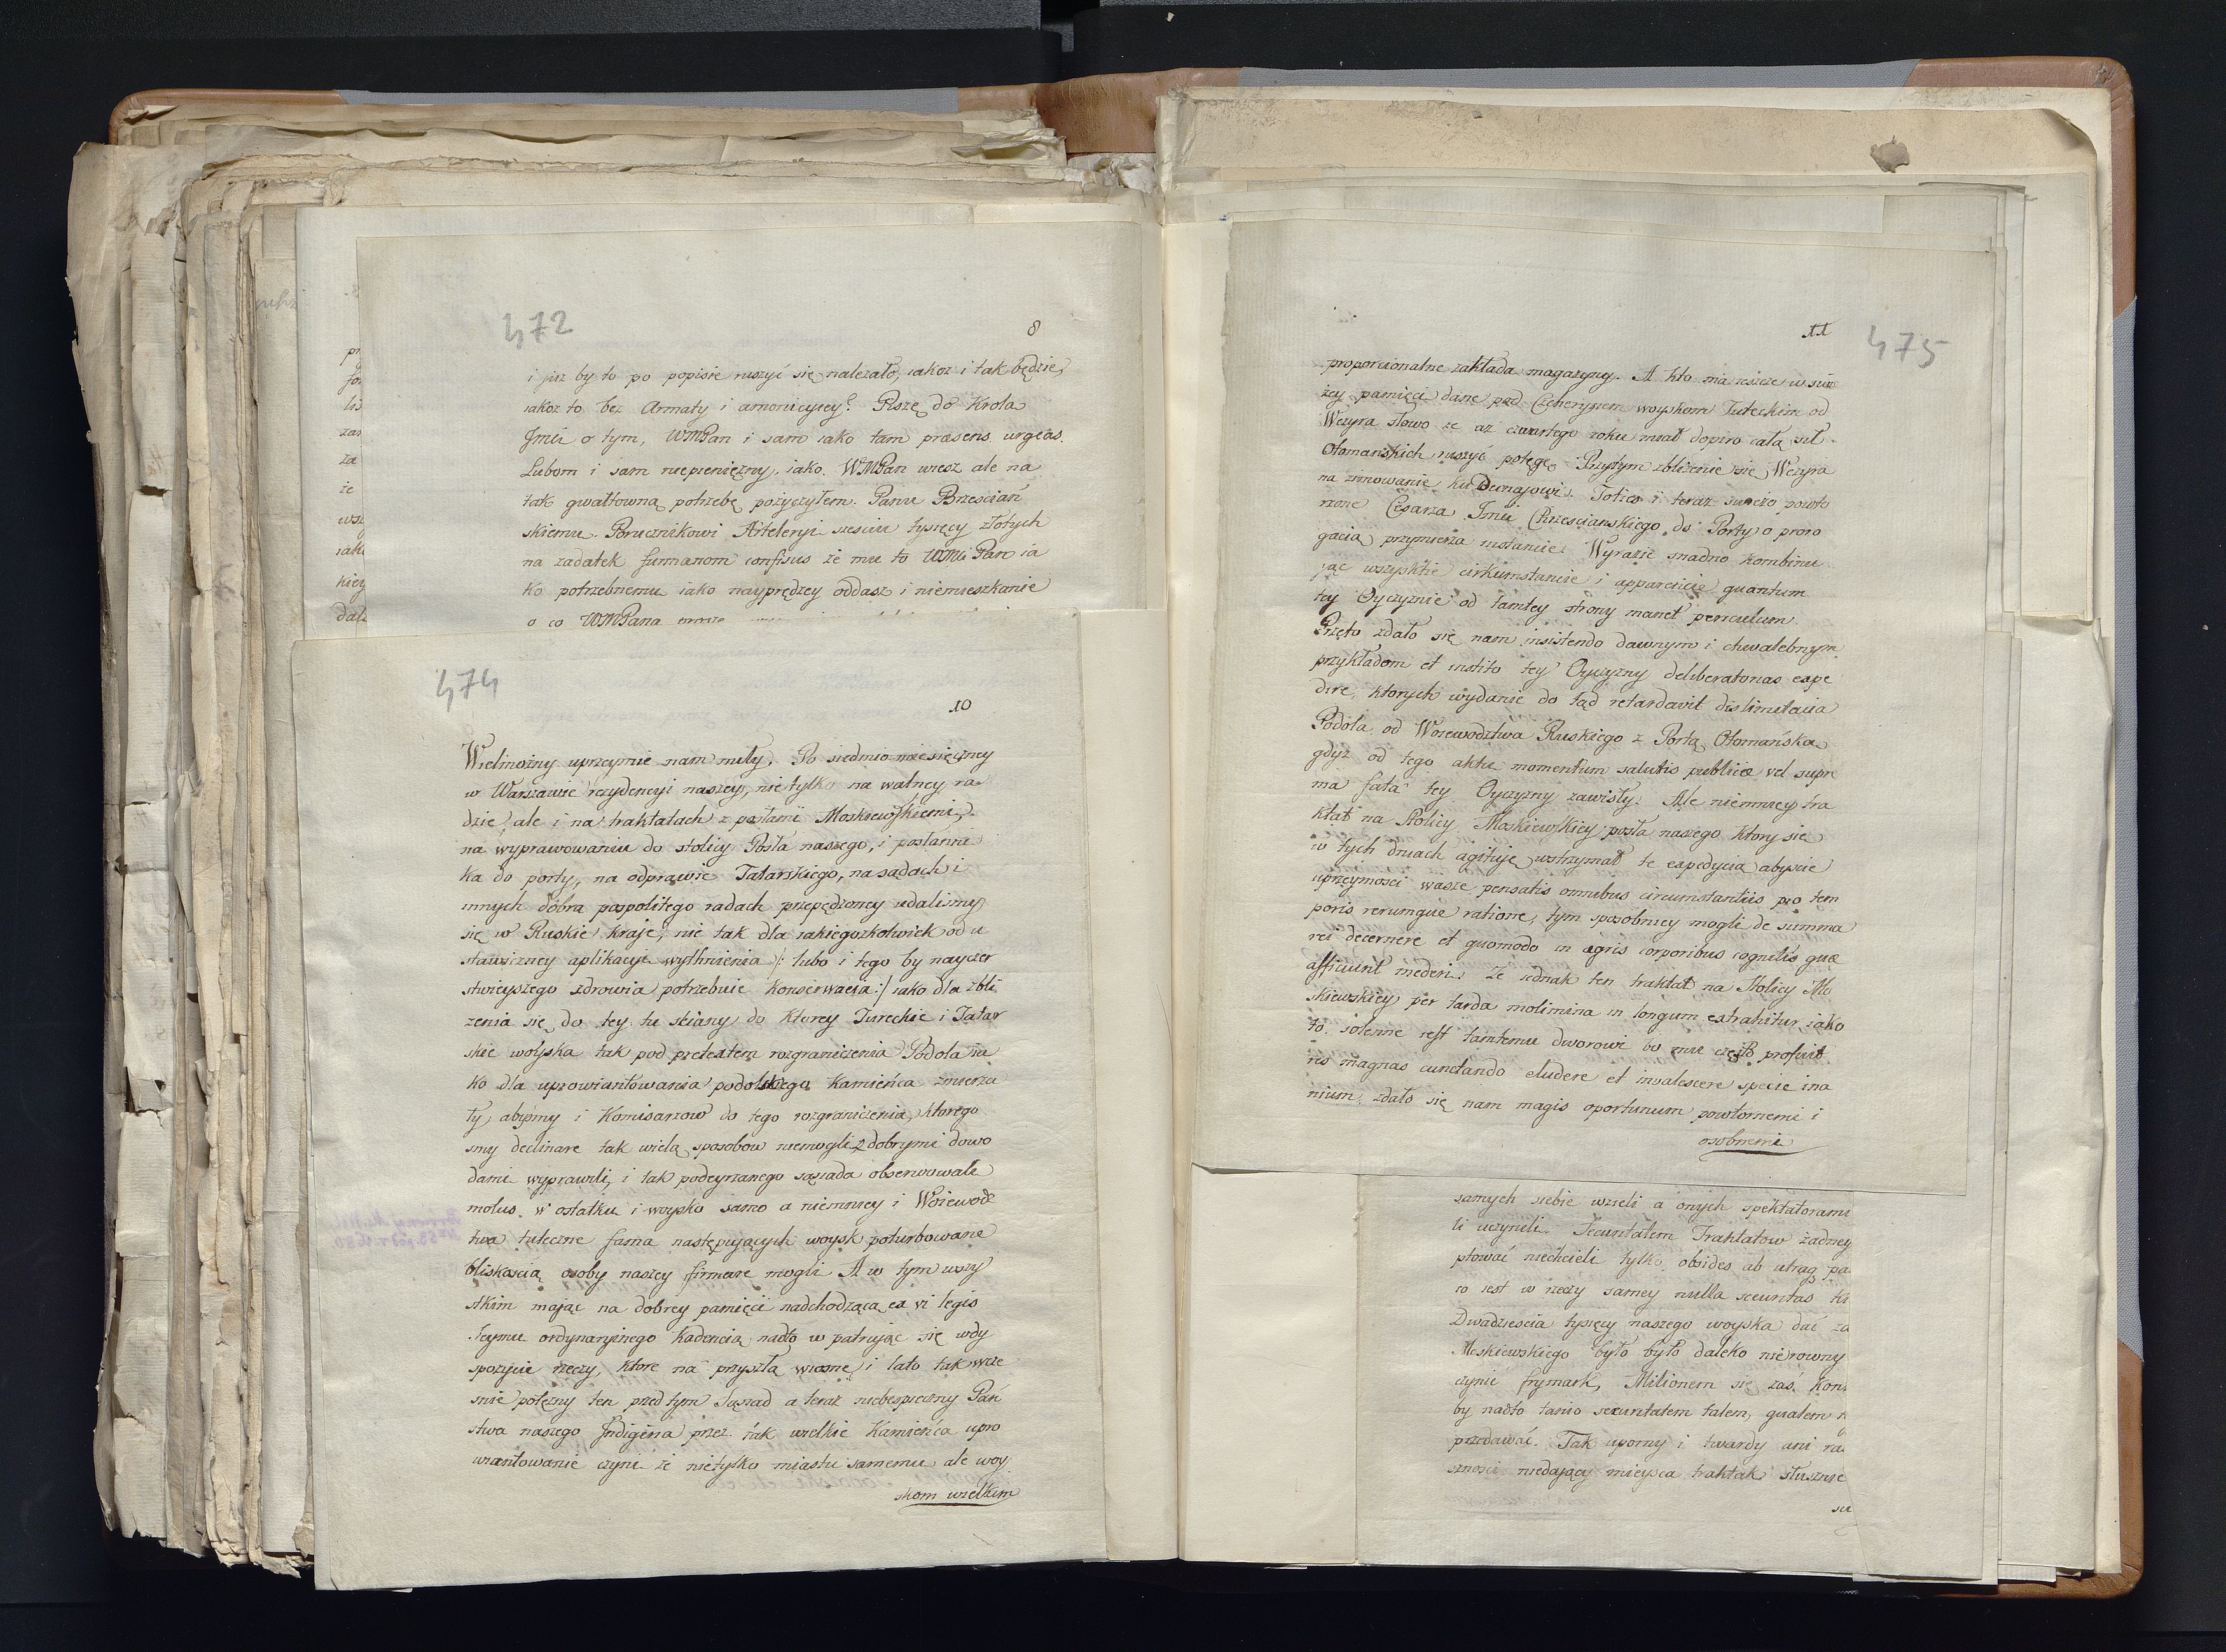 472
8
i już by to po popisie ruszyć się należało, iakoz i tak będzie,
iakoz to bez Armaty i amonicyiey? Piszę do Krola
Jmći o tym, WMPan i sam iako tam præsens urgeas.
Lubom i sam niepieniężny, iako WMPan wiesz ale na
tak gwałtowną potrzebę pożyczyłem Panu Brzescian
skiemu Porucznikowi Arteleryi szesciu tysięcy złotych
na zadatek furmanom confisus że mu to WMć Pan ia
ko potrzebnemu iako nayprędzey oddasz i niemieszkanie
o co WMPana
474
10
Wielmożny uprzeymie nam miły. Po siedmio miesięczney
w Warszawie rezydencyi naszey, nie tylko na walney ra
dzie, ale i na traktatach z posłami Moskiewskiemi,
na wyprawowaniu do stolicy Posła naszego, i posłanni
ka do porty, na odprawie Tatarskiego, na sądach i
innych dobra pospolitego radach przepędzoney udalismy
się w Ruskie kraje, nie tak dla iakiegozkolwiek od u
stawiczney aplikacyi wytchnienia /: lubo i tego by nayczer
stwieyszego zdrowia potrzebuie konserwacia :/ iako dla zbli
zenia się do tey tu sciany do ktorey Tureckie i Tatar
skie woyska tak pod pretextem rozgraniczenia Podola ia
ko dla uprowiantowania podolskiego Kamieńca zmierza
ły, abysmy i Komisarzow do tego rozgraniczenia, ktorego
smy declinare tak wielą sposobow niemogli z dobrymi dowo
dami wyprawili, i tak podeyrzanego sąsiada obserwowali
motus, w ostatku i woysko samo a niemniey i Woiewodz
twa tuteczne fama następujących woysk poturbowane
bliskoscią osoby naszey firmare mogli. A w tym wszy
stkim mając na dobrey pamięci nadchodzącą ex vi legis
Seymu ordynaryinego kadencią, nadto w patrując się wdy
spozycie rzeczy, ktore na przyszłą wiosnę i lato tak wcze
snie potężny ten przedtym Sąsiad a teraz niebespieczny Pań
stwa naszego Indigena przez tak wielkie Kamieńca upro
wiantowanie czyni że nietylko miastu samemu ale woy
skom wielkim
11
475
proporcionalne zakłada magazyny. A kto ma ieszcze w swie
żey pamięci dane pod Czehrynem woyskom Tuteckim od
Wezyra słowo że aż czwartego roku miał dopiro całą sił
Otomańskich ruszyć potęgę. Przytym zbliżenie się Wezyra
na zimowanie ku Dunajowi. Toties i teraz swieżo powto
rzone Cesarza Jmći Chrzescianskiego do Porty o proro
gacią przymierza instancie. Wyrazić snadno kombinu
jąc wszystkie cirkumstancie i apparencie quantum
tey Oyczyznie od tamtey strony manet periculum.
Przeto zdało się nam insistendo dawnym i chwalebnym
przykładom et instito tey Oyczyzny deliberatorias expe
dire, ktorych wydanie do tąd retardavit dislimitacia
Podola od Woiewodztwa Ruskiego z Portą Otomańską
gdyz od tego aktu momentum salutis publicæ vel supre
ma fata tey Oyczyzny zawisły. Ale niemniey tra
ktat na Stolicy Moskiewskiey posła naszego ktory sie
w tych dniach agituje wstrzymał te expedycia abyscie
uprzeymosci wasze pensatis omnibus circumstantiis pro tem
poris rerumque ratione, tym sposobniey mogli de summa
rei decernere et quomodo in ægris corporibus cognitis quæ
afficiunt mederi. Że iednak ten traktat na Stolicy Mo
skiewskiey per tarda molimina in longum extrahitur, iako
to solenne iest tamtemu dworowi bo mu często profuit
res magnas cunctando eludere et invalescere specie ina
nium, zdało się nam magis oportunum powtornemi i
osobnemi
samych siebie wzieli a onych spektatorami
li uczynili. Securitatem Traktatow żadney
ptować niechcieli tylko obsides ab utraq pa
co iest w rzeczy samey nulla securitas
Dwadziescia tysięcy naszego woyska dać za
Moskiewskiego było było daleko nierowny
czynić frymark, Milionem się zaś
by nadto tanio securitatem talem, qualem
przedawać. Tak uporny i twardy ani
sznosci niedający mieysca traktat słusznie